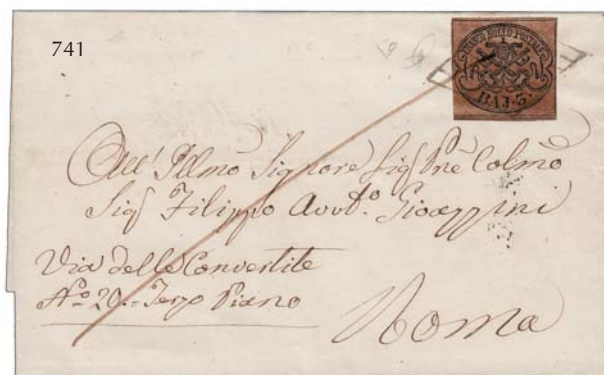 741
FRANCO BOLLO POSTALE
BAJ. 3.
All' Illmo Signore Sig Pne Colmo
Sig Filippo Avvto.
Via delle Convertite
No 20. Terzo Piano
Roma